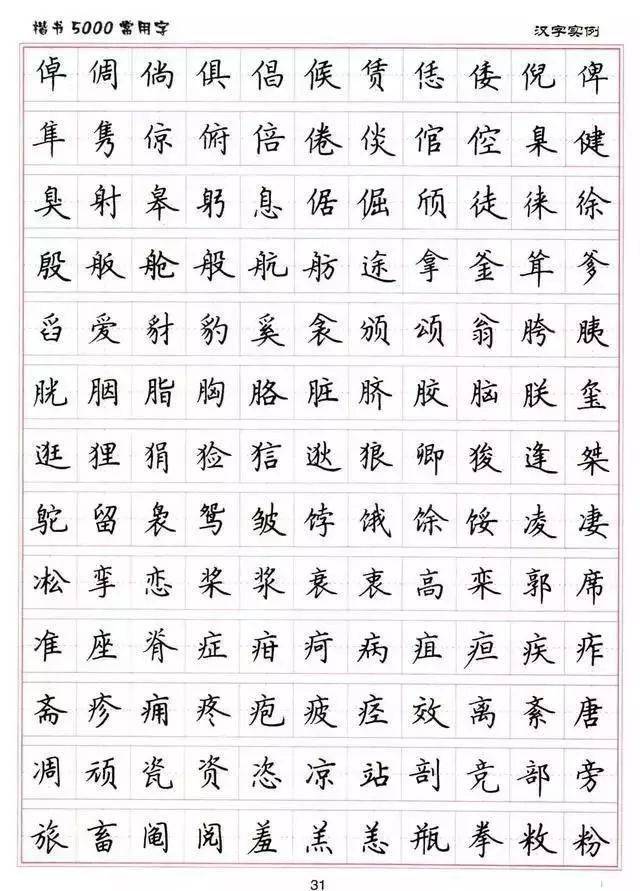 楷书5000常用字 汉字实例
倬倜倘俱倡候赁恁倭倪俾
隼隽倞俯倍倦倓倌倥臬健
臭射皋躬息倨倔颀徒徕徐
殷舨舱般航舫途拿釜耸爹
舀爱豺豹奚衾颁颂翁胯胰
胱胭脂胸胳脏脐胶脑朕玺
逛狸狷猃狺逖狼卿狻逢桀
鸵留袅鸳皱饽饿馀馁凌凄
凇挛恋桨浆衰衷高栾郭席
准座脊症疳疴病疽疸疾痄
斋疹痈疼疱疲痉效离紊唐
凋颃瓷资恣凉站剖竞部旁
旅畜阄阅羞羔恙瓶拳敉粉
31